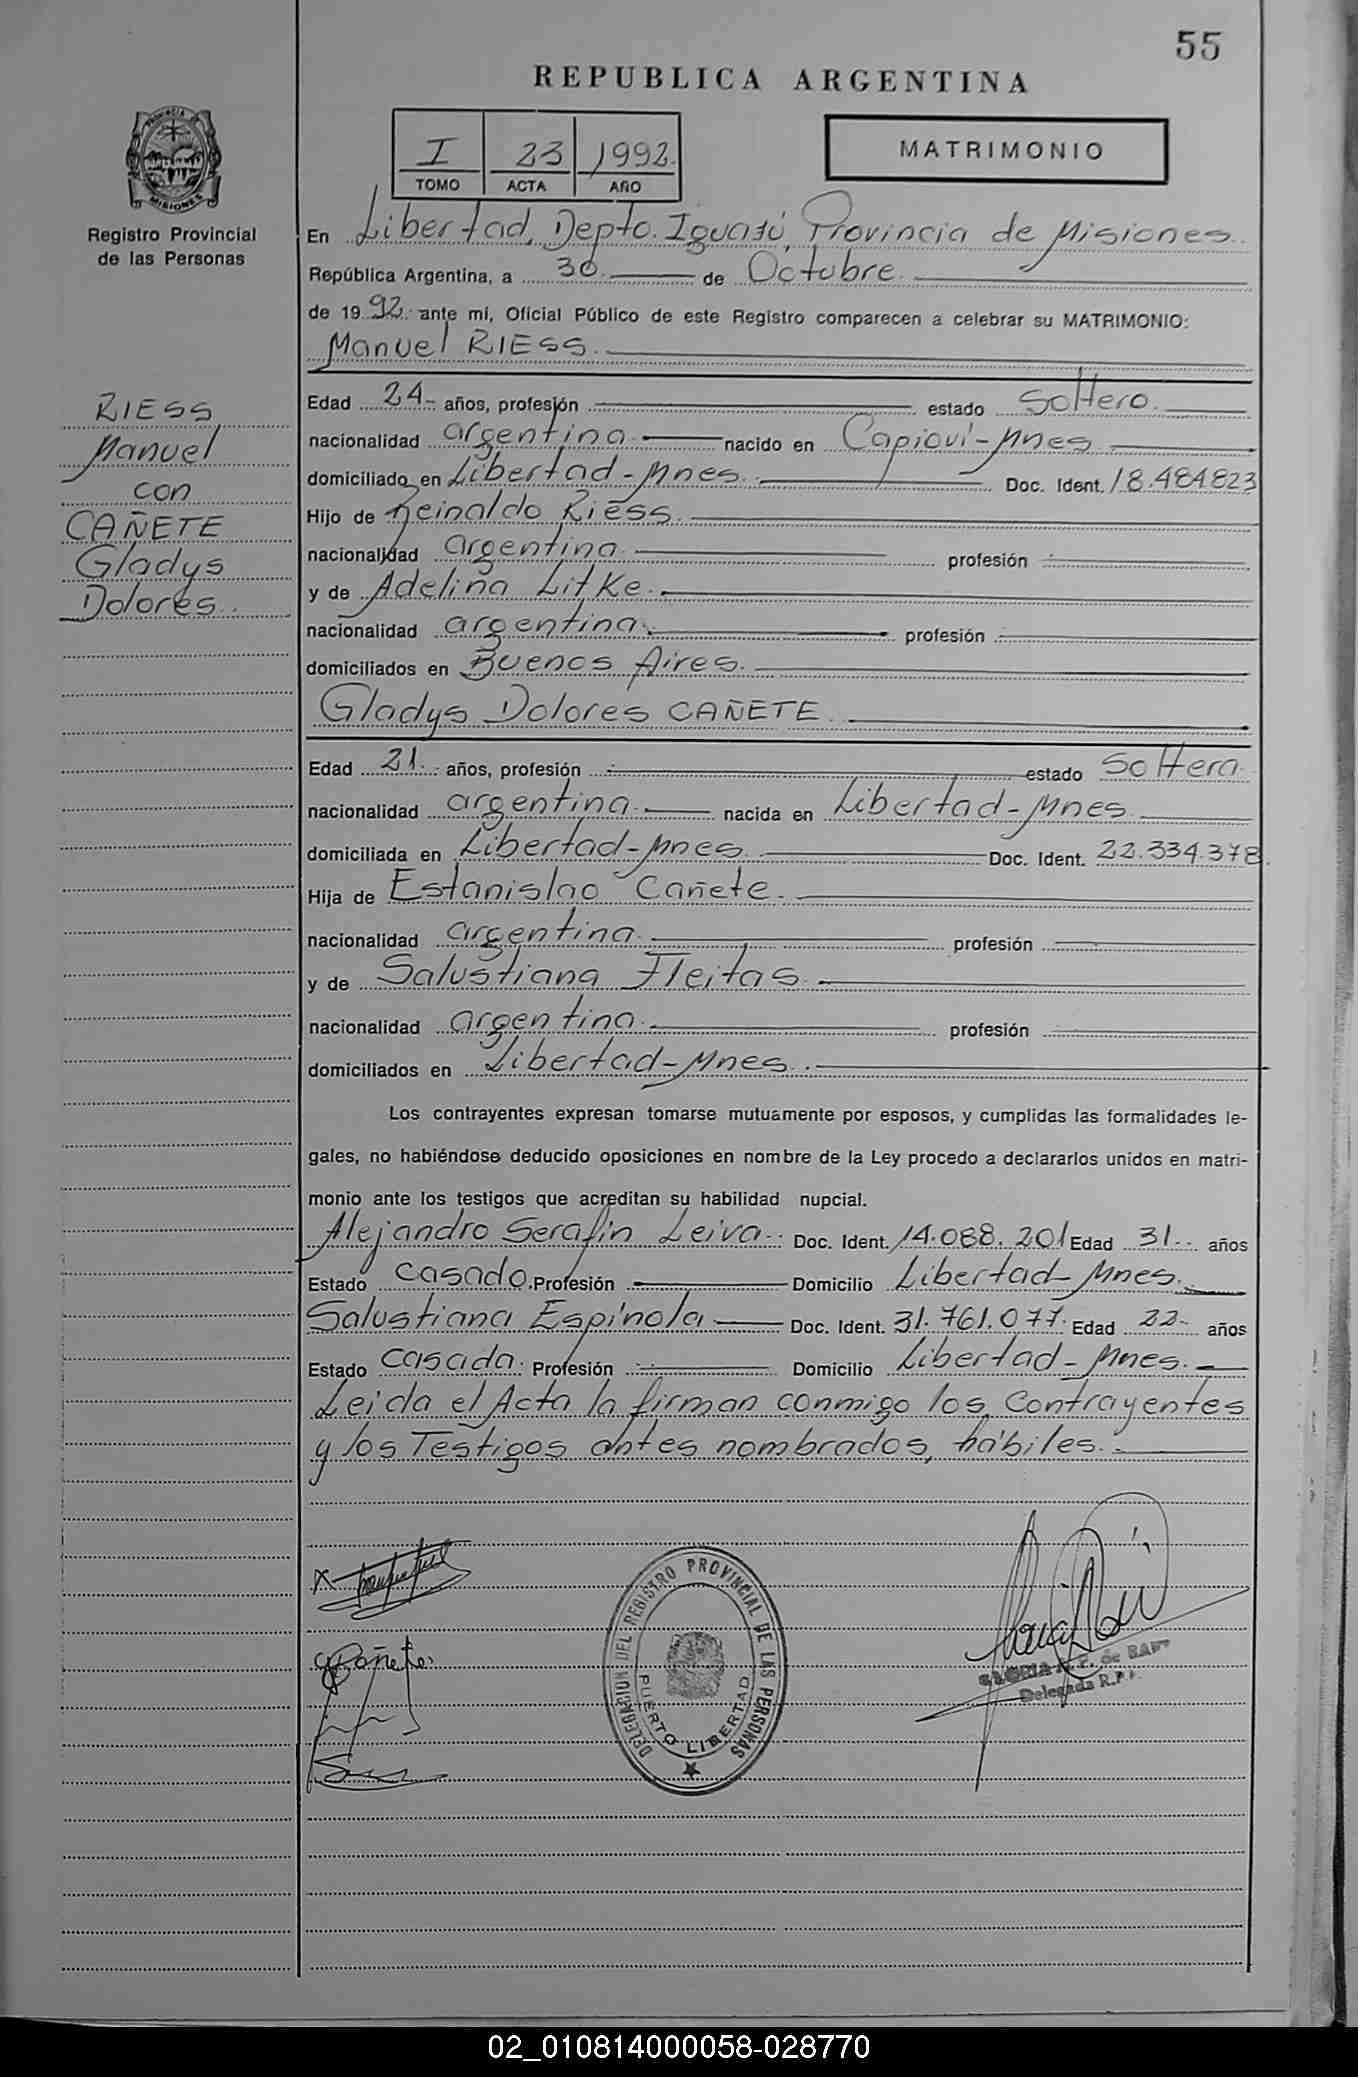 55
REPUBLICA ARGENTINA
I 23 1992.
TOMO ACTA AÑO
MATRIMONIO
PROVINCIA DE
MISIONES
Registro Provincial
de las Personas
En Libertad, Depto. Iguazú, Provincia de Misiones.
República Argentina, a 30 de Octubre.
de 19 92. ante mí, Oficial Público de este Registro comparecen a celebrar su MATRIMONIO:
Manuel RIESS.
RIESS
Manuel
con
CAÑETE
Gladys
Dolores.
Edad 24- años, profesión estado Soltero.
nacionalidad argentina. nacido en Capioví-Mnes
domiciliado en Libertad-Mnes. Doc. Ident. 18.484823
Hijo de Reinaldo Riess.
nacionalidad argentina. profesión
y de Adelina Litke.
nacionalidad argentina. profesión
domiciliados en Buenos Aires.
Gladys Dolores CAÑETE.
Edad 21. años, profesión estado Soltera.
nacionalidad argentina. nacida en Libertad-Mnes.
domiciliada en Libertad-Mnes. Doc. Ident. 22.334.378
Hija de Estanislao Cañete.
nacionalidad argentina. profesión
y de Salustiana Fleitas.
nacionalidad argentina. profesión
domiciliados en Libertad-Mnes.
Los contrayentes expresan tomarse mutuamente por esposos, y cumplidas las formalidades le-
gales, no habiéndose deducido oposiciones en nombre de la Ley procedo a declararlos unidos en matri-
monio ante los testigos que acreditan su habilidad nupcial.
Alejandro Serafín Leiva. Doc. Ident. 14.088.201 Edad 31. años
Estado Casado. Profesión Domicilio Libertad-Mnes.
Salustiana Espínola Doc. Ident. 31.761.077. Edad 22- años
Estado Casada. Profesión Domicilio Libertad-Mnes.
Leida el Acta la firman conmigo los Contrayentes
y los Testigos antes nombrados, hábiles.
DELEGACION DEL REGISTRO PROVINCIAL DE LAS PERSONAS
PUERTO LIBERTAD
Cañete.
Delegada R.P.
02_010814000058-028770